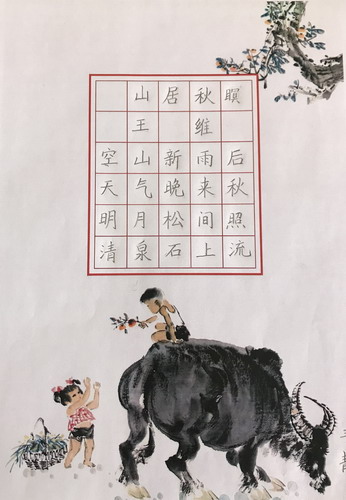 山居秋暝
王维
空山新雨后
天气晚来秋
明月松间照
清泉石上流